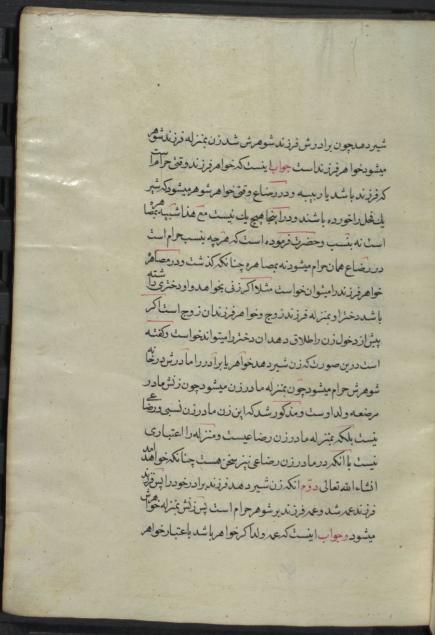 شیر دهد چون برادرش فرزند شوهرش شد زن بمنزله فرزند شوهر
میشود خواهر فرزند است جواب اینست که خواهر فرزند وقتی حرام است
که فرزند باشد یا ربیبه و در رضاع وقتی خواهر شوهر میشود که شیر
یک فحل را خورده باشند و در اینجا هیچ یک نیست مع هذا شبیه بمصاهره
است نه بنسب و حضرت فرموده است که هر چه بنسب حرام است
در رضاع همان حرام میشود نه بمصاهره چنانکه گذشت و در مصاهره
خواهر فرزند را میتوان خواست مثلا اگر زنی بخواهد و او دختری داشته
باشد دختر او بمنزله فرزند زوج و خواهر فرزندان زوج است اگر
پیش از دخول زن را طلاق دهد آن دختر را میتواند خواست و گفته
است درین صورت که زن شیر دهد خواهر یا برادر را مادرش در خانه
شوهرش حرام میشود چون بمنزله مادر زن میشود چون زنش مادر
مرضعه ولد اوست و مذکور شد که این زن مادر زن نسبی و رضاعی
نیست بلکه بمنزله مادر زن رضاعیست و منزله را اعتباری
نیست با آنکه در مادر زن رضاعی نیز سخن هست چنانکه خواهد آمد
انشاء الله تعالی دوّم آنکه زن شیر دهد فرزند برادر خود را پس فرزند
فرزند عمه شد و عمه فرزند بر شوهر حرام است پس زنش بمنزله خواهرش
میشود و جواب اینست که عمه ولد اگر خواهر باشد باعتبار خواهر